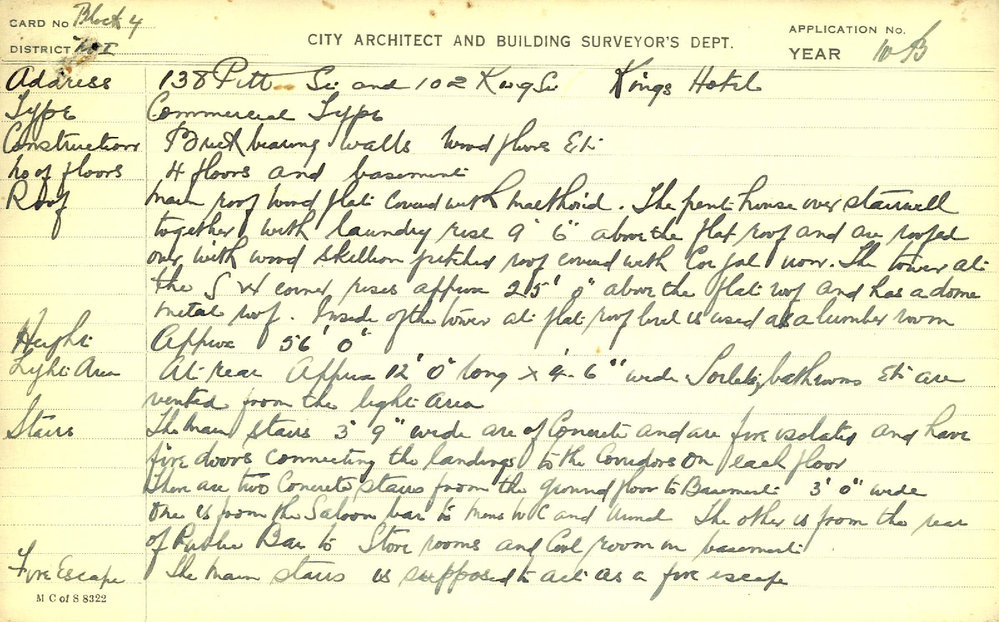 CARD No Block 4
DISTRICT No I
CITY ARCHITECT AND BUILDING SURVEYOR'S DEPT.
APPLICATION No.
YEAR
Address 138 Pitt St and 102 King St Kings Hotel
Type Commercial Type
Construction Brick bearing walls Wood floors Etc
No of floors 4 floors and basement
Roof Main roof Wood flat Covered with Malthoid. The pent house over stairwell
together with laundry rise 9' 6" above the flat roof and are roofed
over with wood skillion pitched roof covered with Cor gal iron. The tower at
the S W corner rises approx 25' 0" above the flat roof and has a dome
metal roof. Inside of the tower at flat roof level is used as a lumber room
Height Approx 56' 0"
Light Area At rear Approx 12' 0" long x 4' 6" wide. Toilets, bathrooms Etc are
vented from the light area
Stairs The main stairs 3' 9" wide are of Concrete and are fire isolated and have
fire doors connecting the landings to the Corridors on each floor
There are two Concrete stairs from the ground floor to Basement 3' 0" wide
One is from the Saloon bar to mens W C and Urinal The other is from the rear
of Public Bar to Store rooms and Cool room in basement
Fire Escape The Main stairs is supposed to act as a fire escape
M C of S 8322